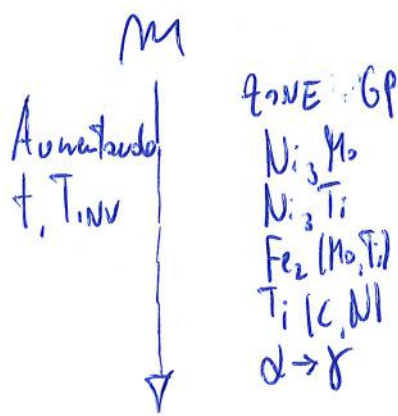 M
Aumentando
t, T INV
ZONE GP
Ni3Mo
Ni3Ti
Fe2(Mo,Ti)
Ti(C,N)
α→γ